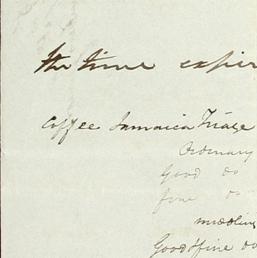 the time expir
Coffee Jamaica Triage
Ordinary
Good do
fine do
middling
Good & fine do